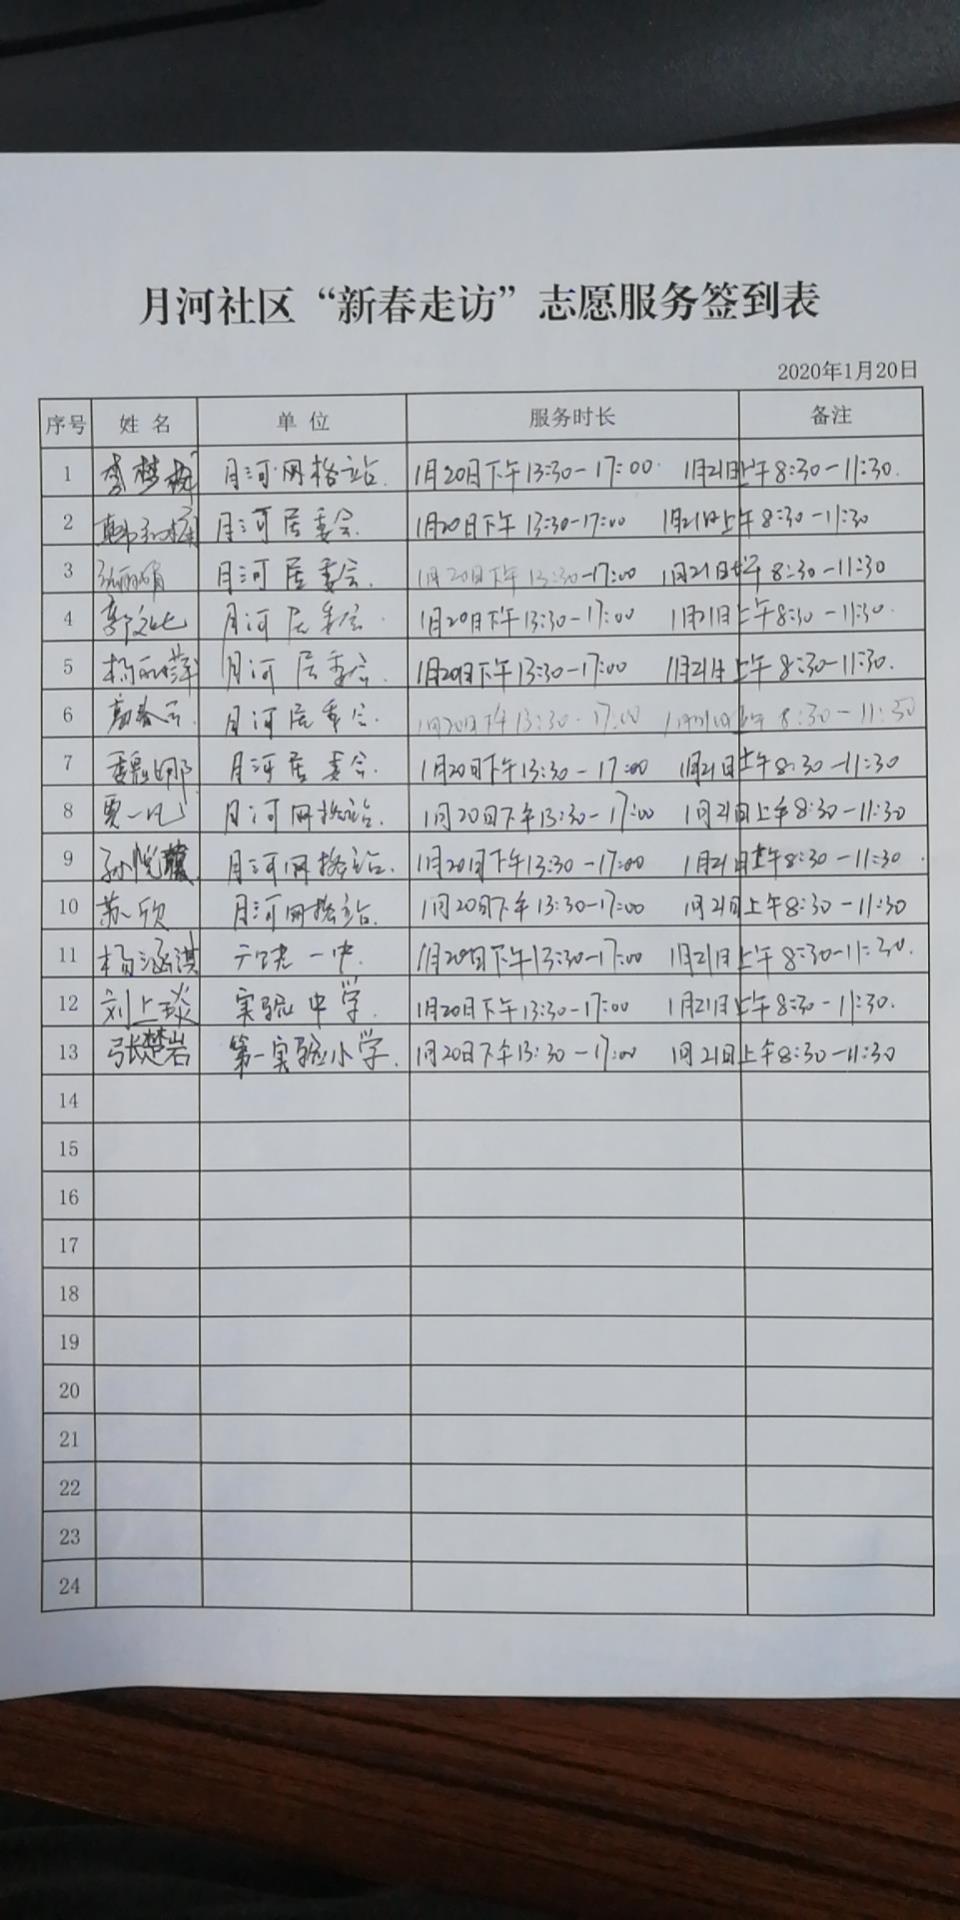 月河社区“新春走访”志愿服务签到表
2020年1月20日
序号 姓名 单位 服务时长 备注
1 李梦 月河网格站 1月20日下午13:30-17:00 1月21日上午8:30-11:30
2 韩 月河居委会 1月20日下午13:30-17:00 1月21日上午8:30-11:30
3 月河居委会 1月20日下午13:30-17:00 1月21日上午8:30-11:30
4 郭文 月河居委会 1月20日下午13:30-17:00 1月21日上午8:30-11:30
5 杨丽萍 月河居委会 1月20日下午13:30-17:00 1月21日上午8:30-11:30
6 月河居委会 1月20日下午13:30-17:00 1月21日上午8:30-11:30
7 魏娜 月河居委会 1月20日下午13:30-17:00 1月21日上午8:30-11:30
8 贾一凡 月河网格站 1月20日下午13:30-17:00 1月21日上午8:30-11:30
9 孙悦 月河网格站 1月20日下午13:30-17:00 1月21日上午8:30-11:30
10 苏欣 月河网格站 1月20日下午13:30-17:00 1月21日上午8:30-11:30
11 杨涵淇 一中 1月20日下午13:30-17:00 1月21日上午8:30-11:30
12 刘上琰 实验中学 1月20日下午13:30-17:00 1月21日上午8:30-11:30
13 张楚岩 第一实验小学 1月20日下午13:30-17:00 1月21日上午8:30-11:30
14
15
16
17
18
19
20
21
22
23
24